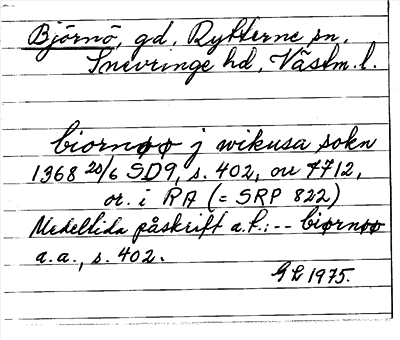 Björnö, gd, Rytterne sn,
Snevringe hd, Västm. l.
biornøø j wikusa sokn
1368 20/6 SD9, s. 402, nr 7712,
or. i RA (= SRP 822)
Medeltida påskrift a.f.: -- biørnøø
a.a., s. 402.
GL 1975.